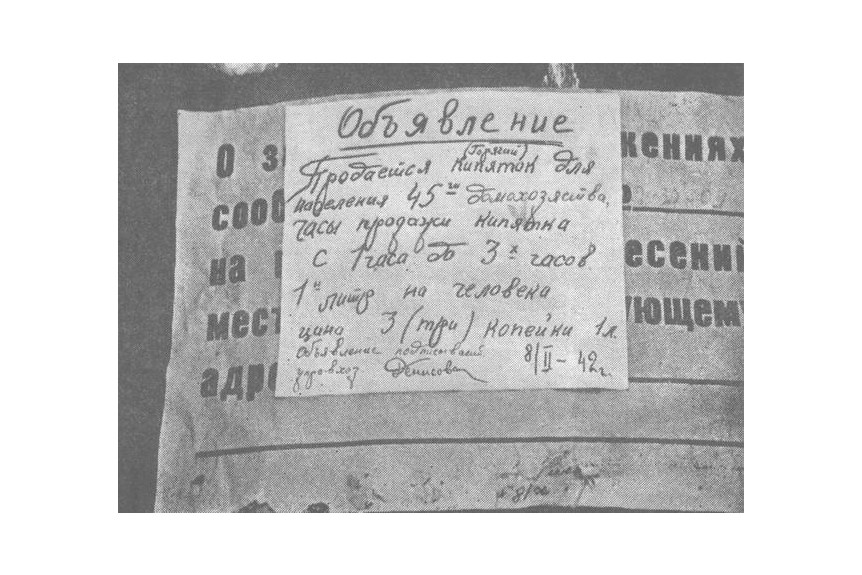 Объявление
(Горячий)
Продается Кипяток для
населения 45го домахозяства,
часы продажи кипятка
с 1 часа до 3х часов
1н литр на человека
цина 3 (три) копейки 1 л.
объявление подписавший
упр-вхоз Денисова 8/II - 42 г.
О з кениях
сооб
на есений
мест ующему
адре